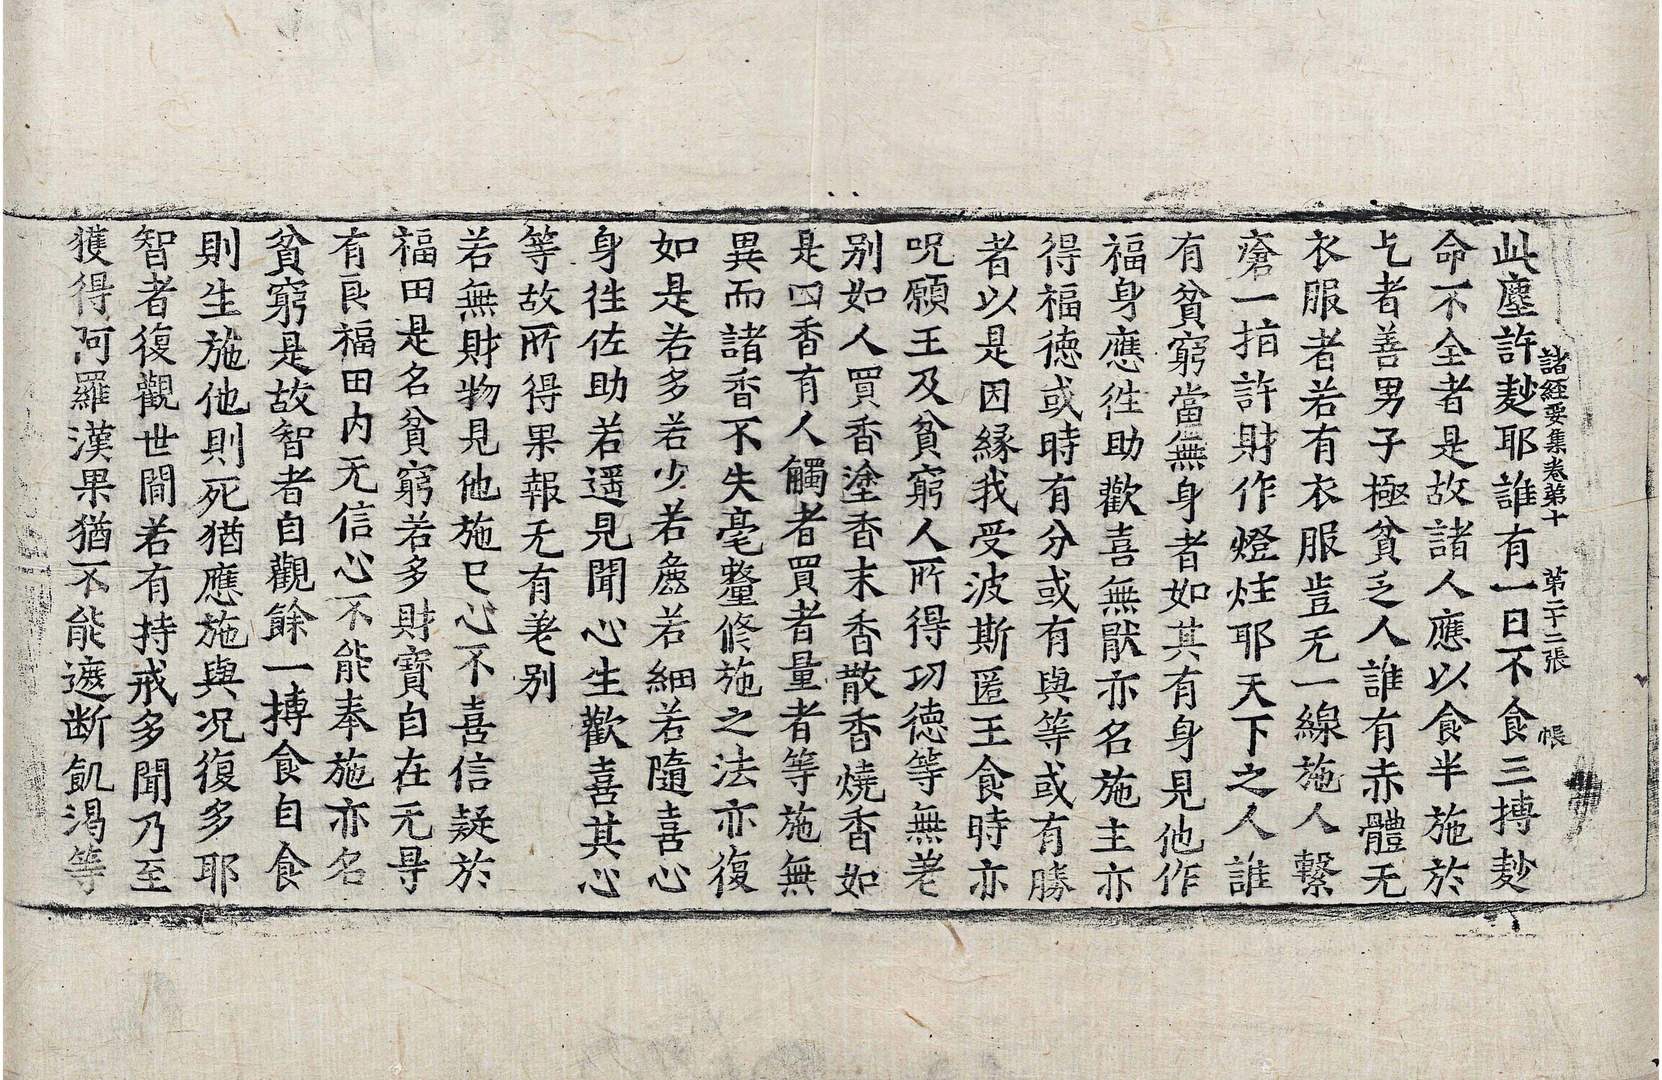 諸經要集卷第十　第二十二張　帳
此塵許麨耶誰有一日不食三摶麨
命不全者是故諸人應以食半施於
乞者善男子極貧乏人誰有赤體无
衣服者若有衣服豈无一線施人繫
瘡一指許財作燈炷耶天下之人誰
有貧窮當無身者如其有身見他作
福身應徃助歡喜無猒亦名施主亦
得福德或時有分或有與等或有勝
者以是因緣我受波斯匿王食時亦
呪願王及貧窮人所得功德等無差
别如人買香塗香末香散香燒香如
是四香有人觸者買者量者等施無
異而諸香不失毫氂修施之法亦復
如是若多若少若麁若細若隨喜心
身徃佐助若遥見聞心生歡喜其心
等故所得果報无有差别
若無財物見他施已心不喜信疑於
福田是名貧窮若多財寶自在无㝵
有良福田内无信心不能奉施亦名
貧窮是故智者自觀餘一摶食自食
則生施他則死猶應施與况復多耶
智者復觀世間若有持戒多聞乃至
獲得阿羅漢果猶不能遮断飢渴等